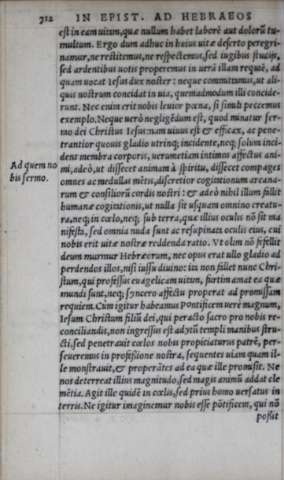 312 IN EPIST. AD HEBRAEOS
est in eam uitam, quæ nullum habet laborē aut dolorū tu-
multum. Ergo dum adhuc in huius uitæ deserto peregri-
namur, ne restitemus, ne respectemus, sed iugibus studijs,
sed ardentibus uotis properemus in uerā illam requiē, ad
quam uocat Iesus dux noster: neque committamus, ut ali-
quis nostrum concidat in uia, quemadmodum illi concide-
runt. Nec enim erit nobis leuior pœna, si simili peccemus
exemplo. Neque uerò neglegēdum est, quod minatur ser-
mo dei Christus Iesus: nam uiuus est & efficax, ac pene-
trantior quouis gladio utrinq; incidente, neq; solum inci-
dens membra corporis, uerumetiam intimos affectus ani-
Ad quem no
bis sermo.
mi, adeò, ut dissecet animam à spiritu, dissecet compages
omnes ac medullas mētis, discretior cogitationum arcana-
rum & consiliorū cordis nostri: & adeò nihil illum fallit
humanæ cogitationis, ut nulla sit usquam omnino creatu-
ra, neq; in cœlo, neq; sub terra, quæ illius oculis nō sit ma
nifesta, sed omnia nuda sunt ac resupinata oculis eius, cui
nobis erit uitæ nostræ reddenda ratio. Vt olim nō fefellit
deum murmur Hebræorum, nec opus erat ullo gladio ad
perdendos illos, nisi iussu diuino: ita non fallet nunc Chri-
stum, qui professus euāgelicam uitam, furtim amat ea quæ
mundi sunt, neq; syncero affectu properat ad promissam
requiem. Cum igitur habeamus Pontificem uerè magnum,
Iesum Christum filiū dei, qui peracto sacro pro nobis re-
conciliandis, non ingressus est adyti templi manibus stru-
cti, sed penetrauit cœlos nobis propiciaturus patrē, per-
seueremus in professione nostra, sequentes uiam quam il-
le monstrauit, & properātes ad ea quæ ille promisit. Ne
nos deterreat illius magnitudo, sed magis animū addat cle
mētia. Agit ille quidē in cœlis, sed prius homo uersatus in
terris. Ne igitur imaginemur nobis esse pōtificem, qui nō
possit